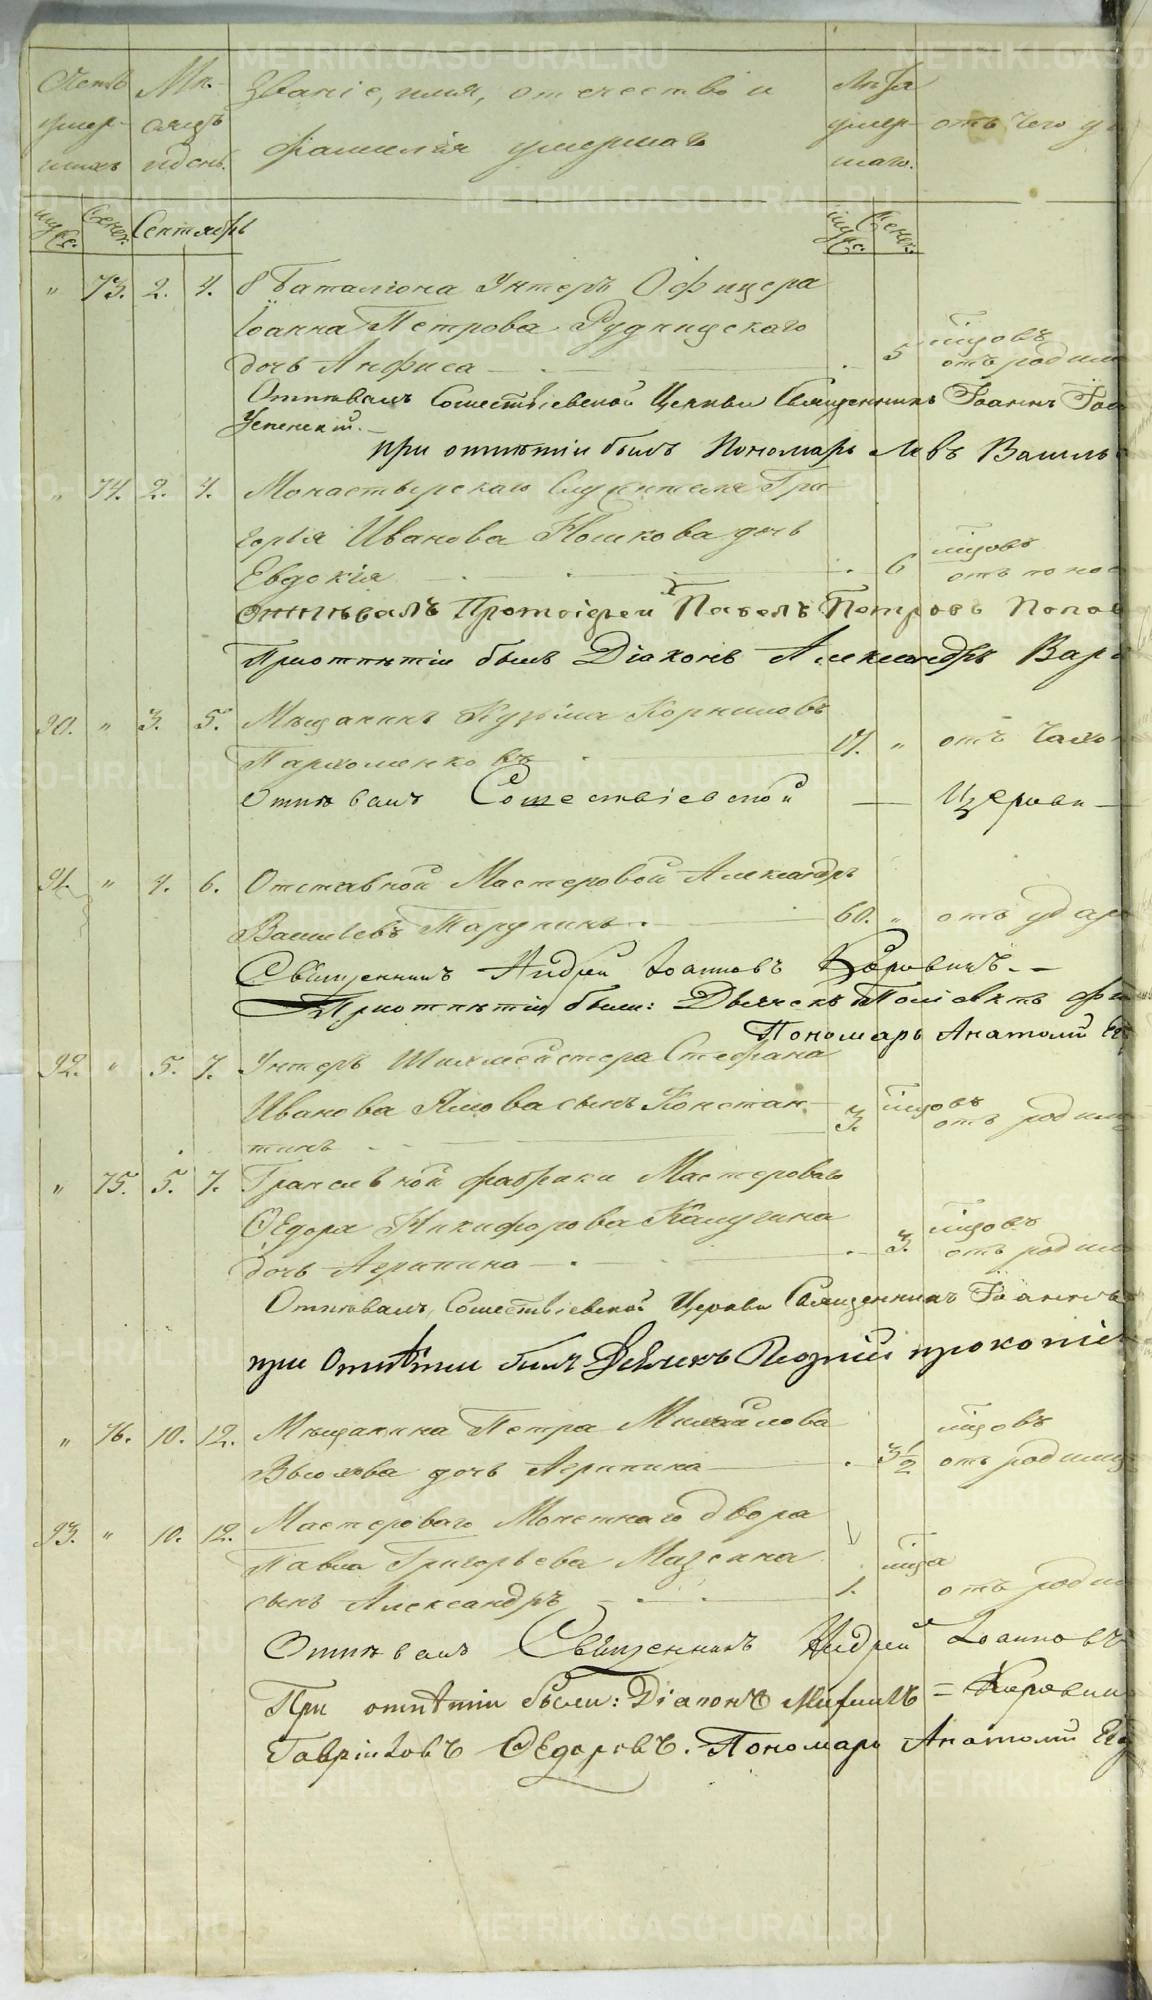 Счетъ умер- шихъ
Мѣ- сяцъ и день.
Званіе, имя, отчество и фамилія умершаго
Лѣта умер- шаго.
отъ чего у
Муж. Женс. Сентябрь Муж. Женс.
" 73. 2. 4. 8 Баталіона Унтеръ Офицера
Іоанна Петрова Рудницскаго
дочь Анфиса 5 мѣсяцовъ отъ родим
Отпѣвалъ Сошествіевской Церкви Священникъ Іоаннъ
Успенскій.
при отпѣтіи былъ Пономарь Левъ Василь
" 74. 2. 4. Монастырскаго Служителя Гри-
горья Иванова Кошкова дочь
Евдокія 6 мѣсяцовъ отъ понос
Отпѣвалъ Протоіерей Павелъ Петровъ Попов
При отпѣтіи былъ Діаконъ Александръ Вар
90. " 3. 5. Мѣщанинъ Кузьма Корниловъ
Пархоменковъ 17. " отъ чахо
Отпѣвалъ Сошествіевской — Церкви —
91. " 4. 6. Отставной Мастеровой Александръ
Васильевъ Тарунинъ 60. " отъ удара
Священникъ Андрей Іоанновъ Коровинъ. —
При отпѣтіи были: Дьячекъ Полiевктъ
Пономарь Анатолій
92. " 5. 7. Унтеръ Шихмейстера Стефана
Иванова Ямова сынъ Констан-
тинъ 3. мѣсяцовъ отъ родим
" 75. 5. 7. Гранильной фабрики Мастероваго
Ѳедора Никифорова Калугина
дочь Агрипина 3. мѣсяцовъ отъ родим
Отпѣвалъ, Сошествіевской Церкви Священникъ Іоаннъ
при Отпѣтіи былъ Дьячекъ прокопіе
" 76. 10. 12. Мѣщанина Петра Михайлова
Вьюхова дочь Агрипина 3½ мѣсяцовъ отъ родимц
93. " 10. 12. Мастероваго Монетнаго двора
Павла Григорьева Мизгина
сынъ Александръ 1. мѣсяца отъ родим
Отпѣвалъ Священникъ Андрей Іоанновъ
При отпѣтіи были: Діаконъ Михаилъ = Коровин
Гавріиловъ Ѳедоровъ. Пономарь Анатолій